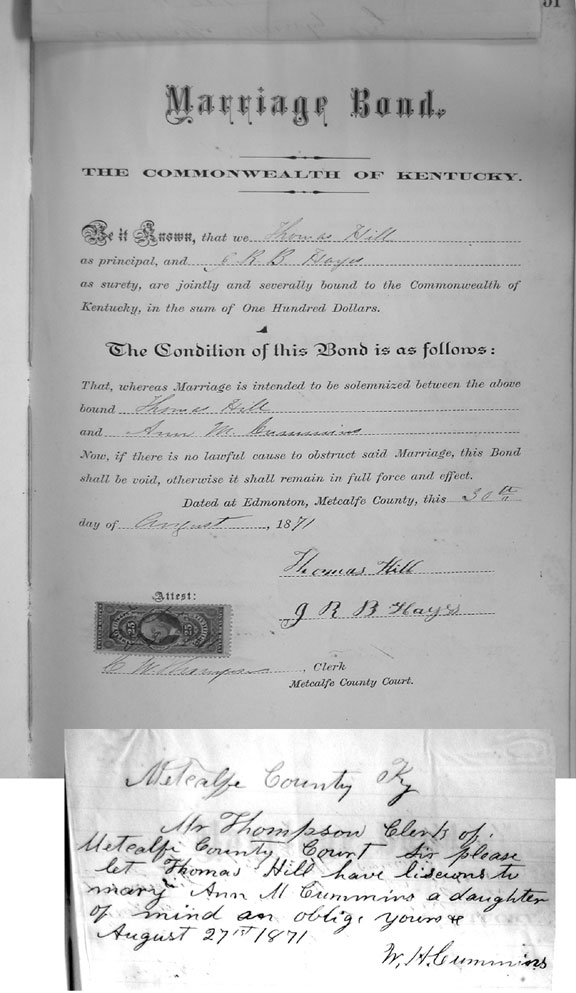 51
Marriage Bond.
THE COMMONWEALTH OF KENTUCKY.
Be it Known, that we Thomas Hill
as principal, and J R B Hayes
as surety, are jointly and severally bound to the Commonwealth of
Kentucky, in the sum of One Hundred Dollars.
The Condition of this Bond is as follows:
That, whereas Marriage is intended to be solemnized between the above
bound Thomas Hill
and Ann M. Cummins
Now, if there is no lawful cause to obstruct said Marriage, this Bond
shall be void, otherwise it shall remain in full force and effect.
Dated at Edmonton, Metcalfe County, this 30th
day of August, 1871
Thomas Hill
J R B Hayes
Attest:
25 25
C W Thompson, Clerk
Metcalfe County Court.
Metcalfe County Ky
Mr Thompson Clerk of
Metcalfe County Court Sir please
let Thomas Hill have liscens to
mary Ann M Cummins a daughter
of mind an oblige yours &
August 27st 1871
W. H. Cummins